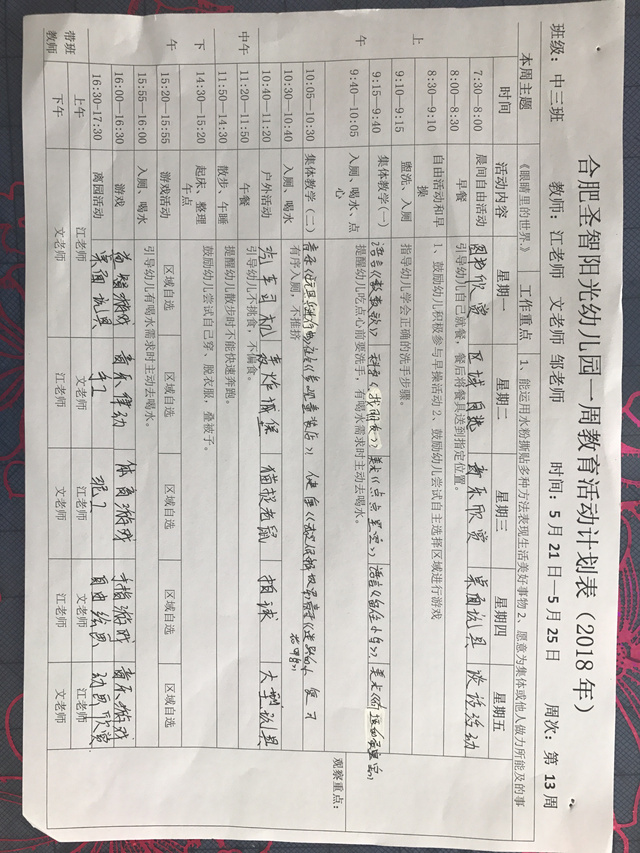 合肥圣智阳光幼儿园一周教育活动计划表（2018 年）
班级：中三班 教师：江老师 文老师 邹老师 时间：5 月 21 日—5 月 25 日 周次：第 13 周
本周主题 《眼睛里的世界。》 工作重点 1、能运用水粉撕贴多种方法表现生活美好事物 2、愿意为集体或他人做力所能及的事
时间 活动内容 星期一 星期二 星期三 星期四 星期五
观察重点：
7:30—8:00 晨间自由活动 图书欣赏 区域自选 音乐欣赏 桌面玩具 谈话活动
8:00—8:30 早餐 引导幼儿自己就餐，餐后将餐具送到指定位置。
8:30—9:10 自由活动和早操 1、鼓励幼儿积极参与早操活动 2、鼓励幼儿尝试自主选择区域进行游戏
上午
9:10—9:15 盥洗、入厕 指导幼儿学会正确的洗手步骤。
9:15—9:40 集体教学(一) 语言《数数歌》 科学《找朋友》 美术《点点星空》 语言
9:40—10:05 入厕、喝水、点心 提醒幼儿吃点心前要洗手，有喝水需求时主动去喝水。
10:05—10:30 集体教学（二） 《参观童装店》 健康
10:30—10:40 入厕、喝水 有序入厕，不推挤
10:40—11:20 户外活动 汽车司机 轰炸城堡 猫捉老鼠 拍球 大型玩具
中午
11:20—11:50 午餐 引导幼儿不挑食，不偏食。
11:50—14:30 散步、午睡 提醒幼儿散步时不能快速奔跑。
下午
14:30—15:20 起床、整理午点 鼓励幼儿尝试自己穿、脱衣服，叠被子。
15:20—15:55 游戏活动 区域自选 区域自选 区域自选 区域自选 区域自选
15:55—16:00 入厕、喝水 引导幼儿有喝水需求时主动去喝水。
16:00—16:30 游戏 益智游戏 音乐律动 体育游戏 手指游戏 音乐游戏
16:30-17:30 离园活动 桌面玩具 手工 泥工 自由绘画 动画欣赏
带班教师 上午 江老师 文老师 江老师 文老师 江老师
下午 文老师 江老师 文老师 江老师 文老师